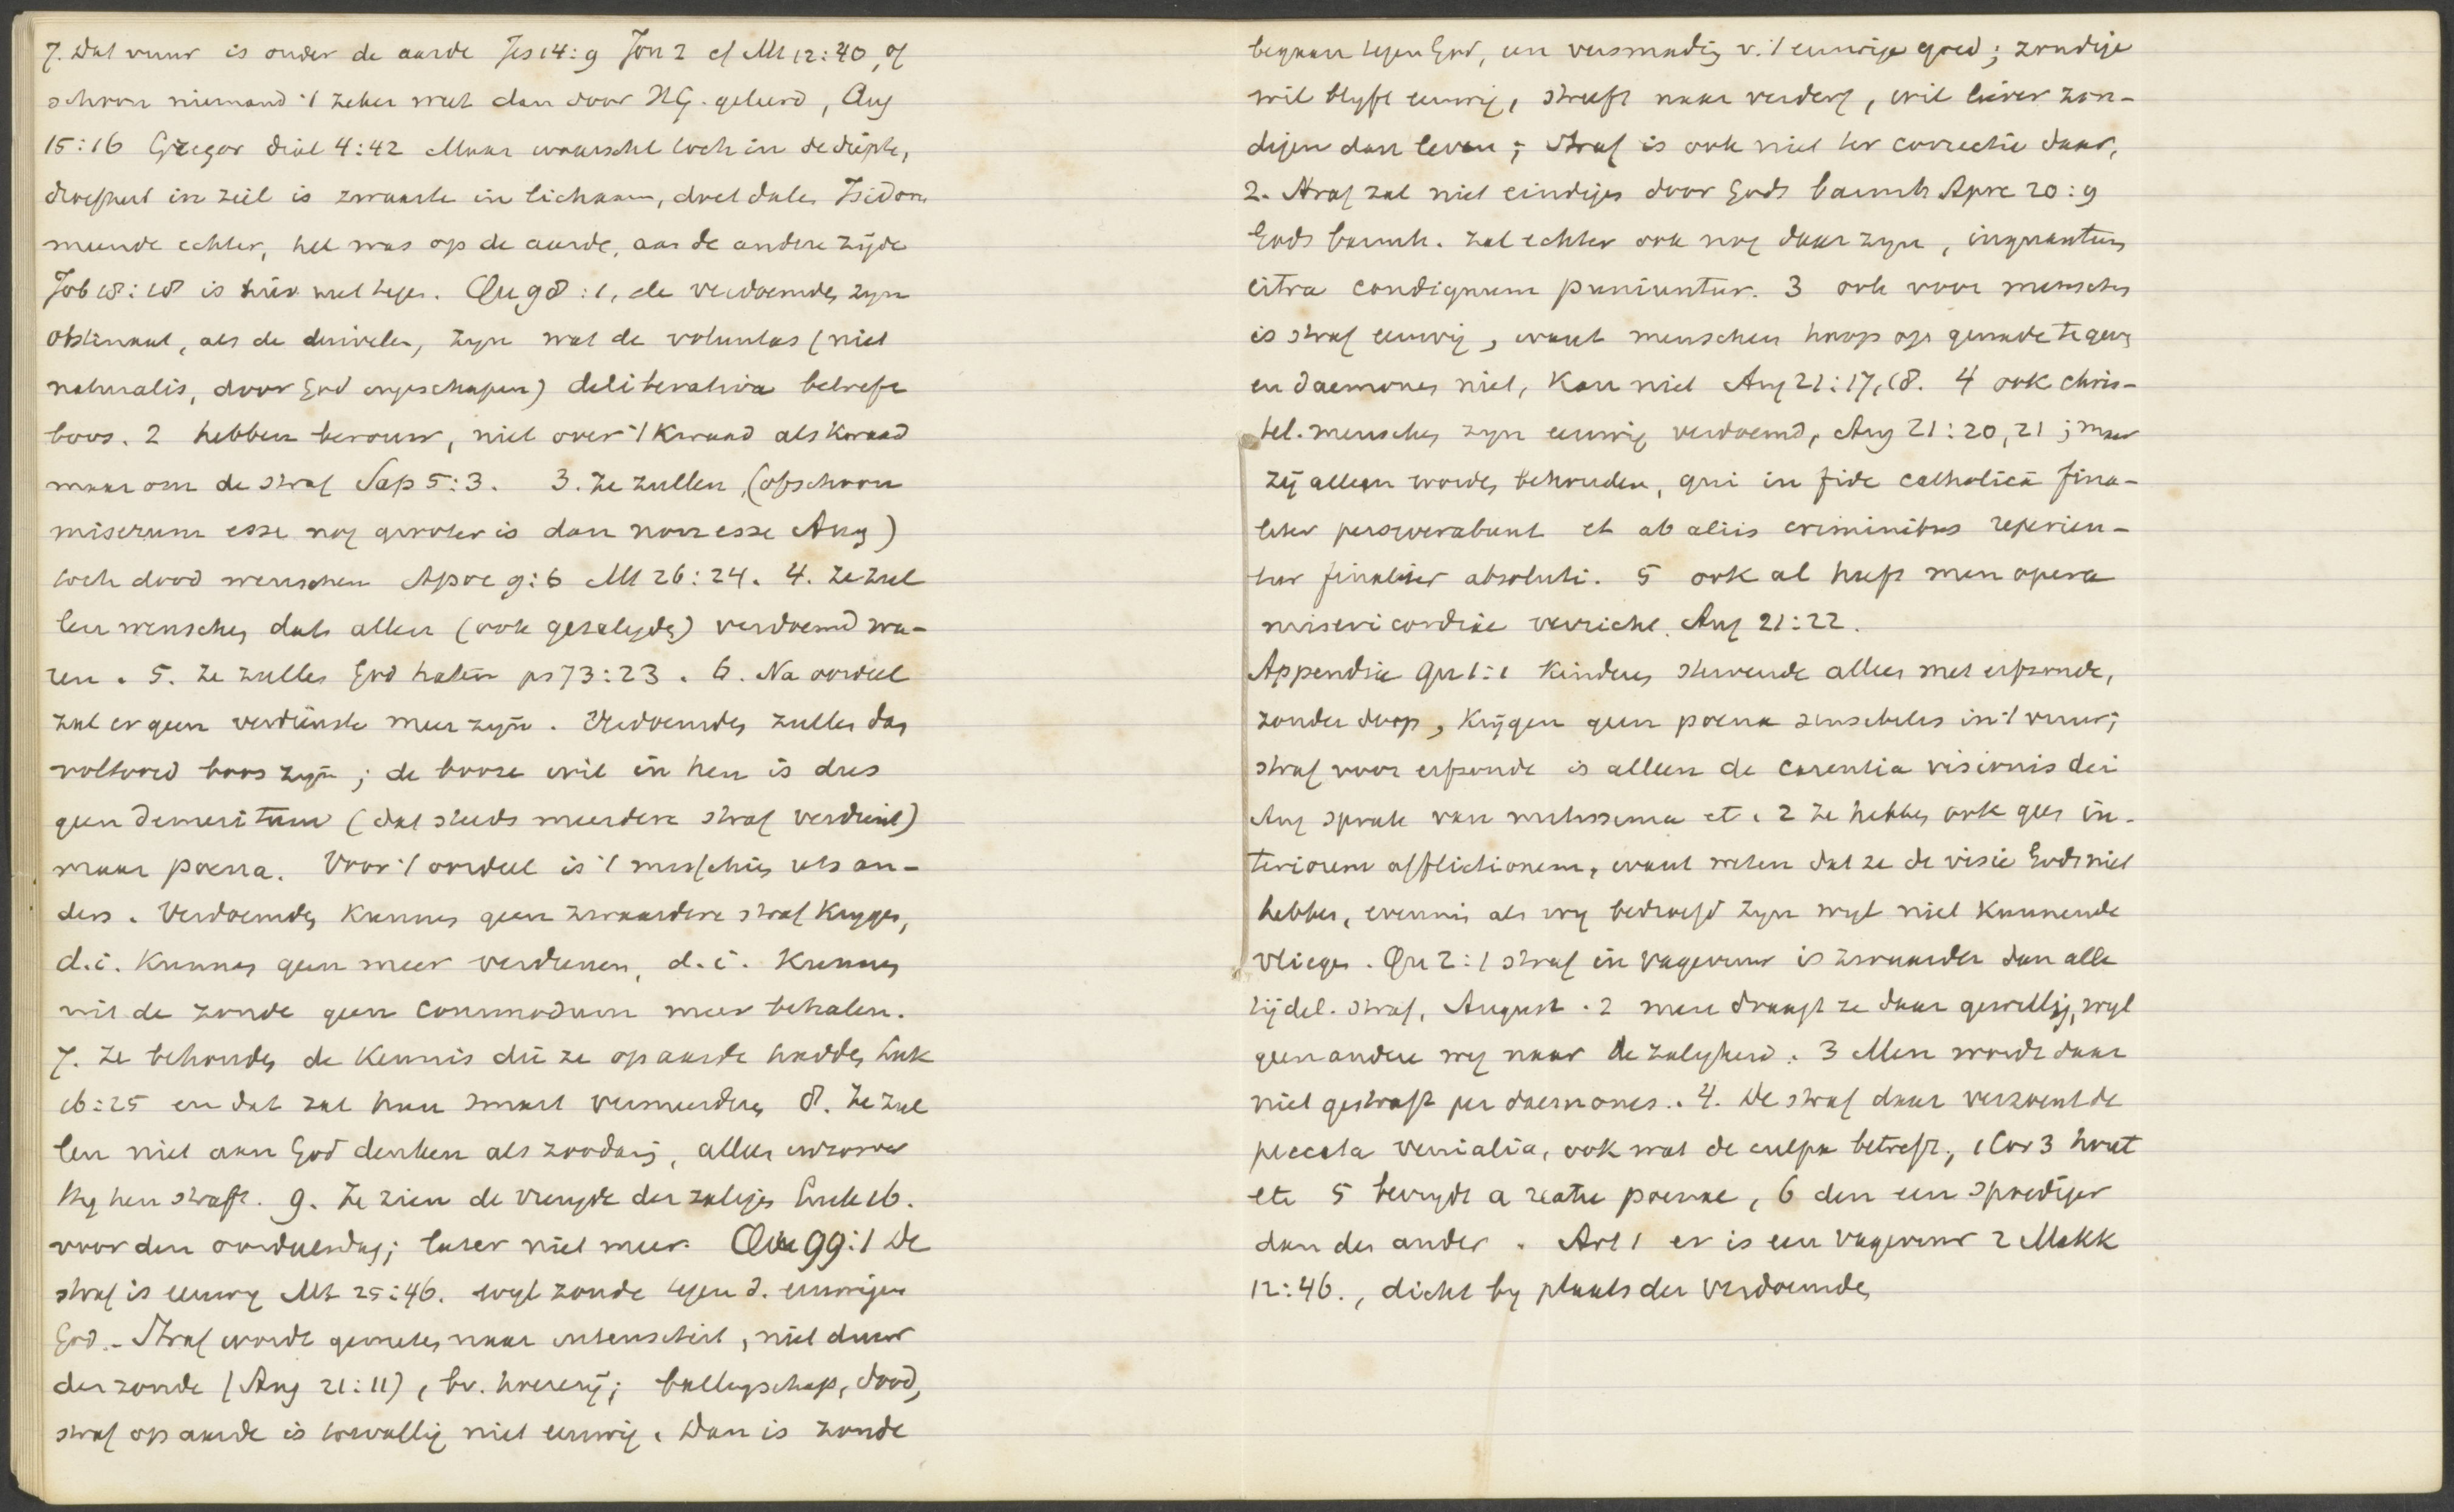 7. Dat vuur is onder de aarde Jes 14:9 Jon 2 cf Mt 12:40, of
schoon niemand 't zeker weet dan door H.G. geleerd, Aug
15:16 Gregor dial 4:42 Maar waarschl toch in de diepte,
droefheid in ziel is zwaarte in lichaam, doet dalen Isidorus
meende echter, het was op de aarde, aan de andere zijde
Job 18:18 is hier wel tegen. Qu 98:1, de verdoemden zijn
obstinaat, als de duivelen, zijn wat de voluntas (niet
naturalis, door God ingeschapen) deliberativa betreft
boos. 2 hebben berouw, niet over 't kwaad als kwaad
maar om de straf Sap 5:3. 3. Ze zullen (ofschoon
miserum esse nog grooter is dan non esse Aug)
toch dood wenschen Apoc 9:6 Mt 26:24. 4. Ze zul
len wenschen dat allen (ook gezaligden) verdoemd wa-
ren. 5. Ze zullen God haten ps 73:23. 6. Na oordeel
zal er geen verdienste meer zijn. Verdoemden zullen dan
voltooid boos zijn; de booze wil in hen is dus
geen demeritum (dat steeds meerdere straf verdient)
maar poena. Voor 't oordeel is 't misschien iets an-
ders. Verdoemden kunnen geen zwaardere straf krijgen,
d.i. kunnen geen meer verdienen, d.i. kunnen
uit de zonde geen commodum meer behalen.
7. Ze behouden de kennis die ze op aarde hadden Luk
16:25 en dat zal hun smart vermeerderen 8. Ze zul
len niet aan God denken als zoodanig, alleen inzoover
Hij hen straft. 9. Ze zien de vreugde der zaligen Luk 16.
voor den oordeelsdag; later niet meer. Qu 99:1 De
straf is eeuwig Mt 25:46. wijl zonde tegen d. eeuwigen
God. - Straf wordt gemeten naar intensiteit, niet duur
der zonde (Aug 21:11), bv. hoererij; ballingschap, dood,
straf op aarde is toevallig niet eeuwig. Dan is zonde
begaan tegen God, een versmading v. 't eeuwige goed; zondige
wil blijft eeuwig, streeft naar verderf, wil liever zon-
digen dan leven; straf is ook niet ter correctie daar,
2. Straf zal niet eindigen door Gods barmh Apoc 20:9
Gods barmh. zal echter ook nog daar zijn, inquantum
citra condignum puniuntur. 3 ook voor menschen
is straf eeuwig, want menschen hoop op genade te geven
en daemones niet, kan niet Aug 21:17, 18. 4 ook chris-
tel. menschen zijn eeuwig verdoemd, Aug 21:20, 21; maar
zij alleen worden behouden, qui in fide catholica fina-
liter perseverabunt et ab aliis criminibus reperien-
tur finaliter absoluti. 5 ook al heeft men opera
misericordiae verricht. Aug 21:22.
Appendix Qu 1:1 Kinderen stervende alleen met erfzonde,
zonder doop, krijgen geen poena sensibilis in 't vuur;
straf voor erfzonde is alleen de carentia visionis dei
Aug sprak van mitissima etc. 2 Ze hebben ook geen in-
teriorem afflictionem, want weten dat ze de visie Gods niet
hebben, evenmin als wij bedroefd zijn wijl niet kunnende
vliegen. Qu 2:1 straf in vagevuur is zwaarder dan alle
tijdel. straf, August. 2 men draagt ze daar gewillig, wijl
geen andere weg naar de zaligheid. 3 Men wordt daar
niet gestraft per daemones.. 4. De straf daar verzoent de
peccata venialia, ook wat de culpa betreft, 1 Cor 3 hout
etc 5 bevrijdt a reatu poenae, 6 den een spoediger
dan den ander. Art 1 er is een vagevuur 2 Makk
12:46., dicht bij plaats der verdoemden